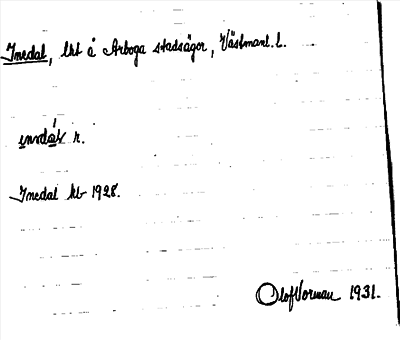 Inedal, lht å Arboga stadsägor, Västmanl. l.
r.
Inedal kb 1928.
Olof Vorman 1931.